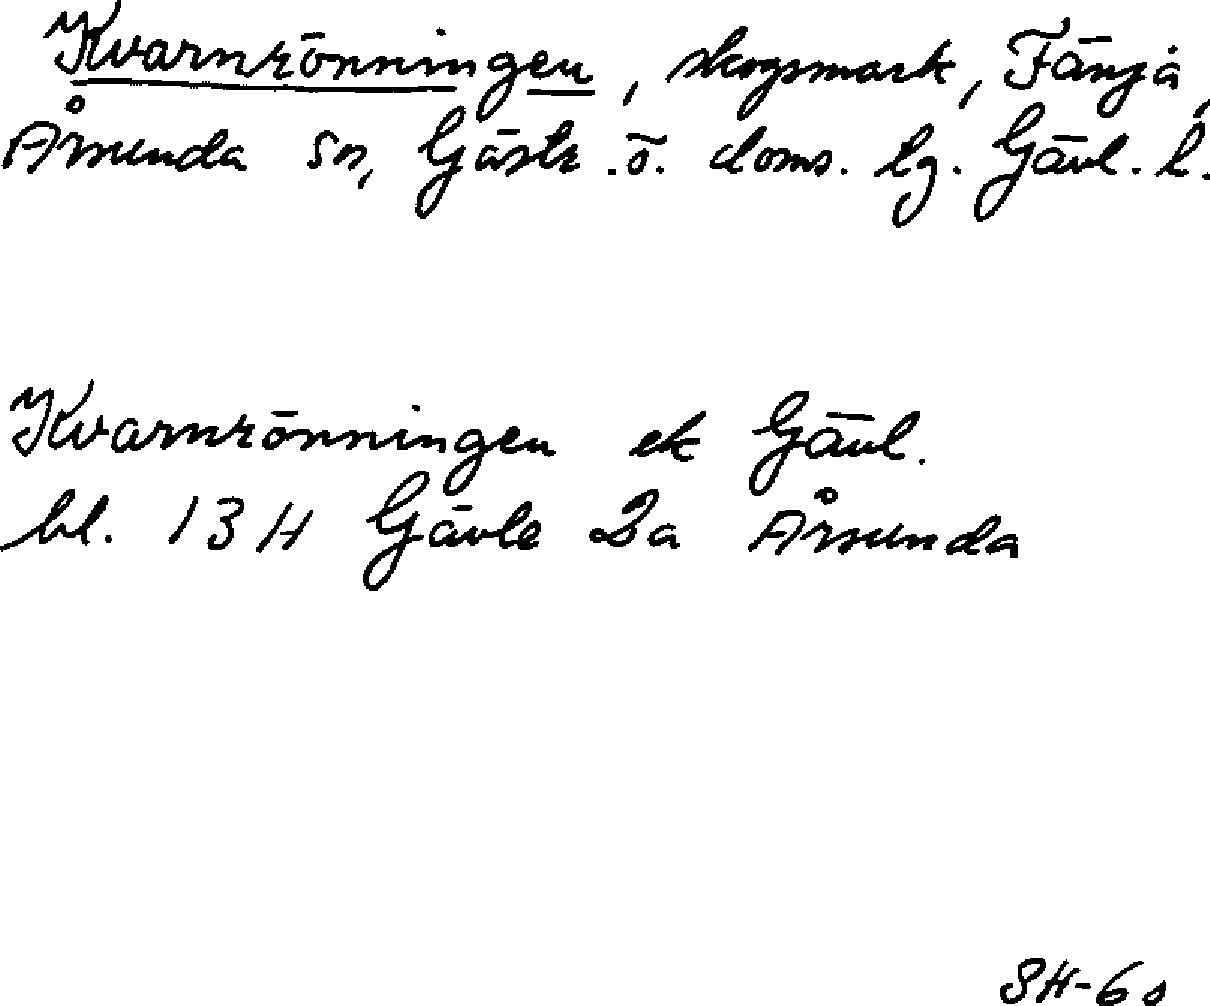 Kvarnrönningen, skogsmark, Fänja,
Årsunda sn, Gästr. ö. doms. tg. Gävl. l.
Kvarnrönningen ek Gävl.
bl. 13H Gävle 2a Årsunda
SH-60